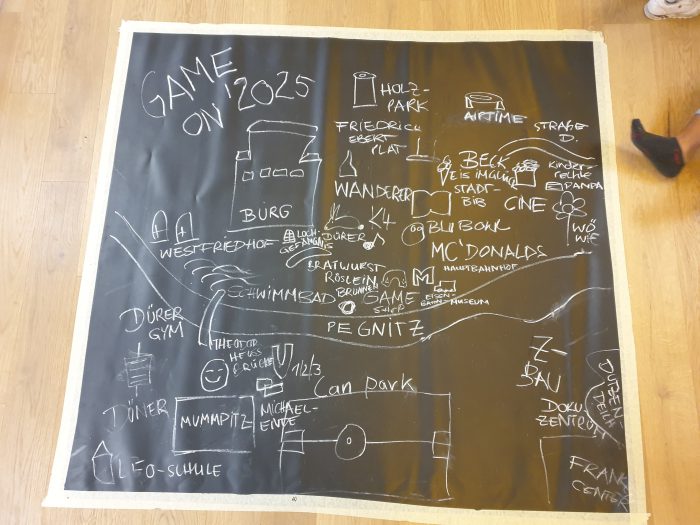 GAME
ON '2025
HOLZ-
PARK
AIRTIME
STRAßE
D.
KINDER-
RECHTE
FRIEDRICH
EBERT
PLAT
BECK
EIS IM GLÜCK
PANDA
WANDERER
STADT-
BIB
CINE
BURG
K4
BLUBOKS
WÖ
WIE
WESTFRIEDHOF
LOCH-
GEFÄNGNIS
DÜRER
MC'DONALDS
HAUPTBAHNHOF
BRATWURST
RÖSLEIN
BRUNNEN
M
SCHWIMMBAD
GAME
SHOP
EISEN-
BAHN-MUSEUM
PEGNITZ
DÜRER
GYM
THEODOR
HEUSS
BRÜCKE
1/2/3
Z-
BAU
DÖNER
MUMMPITZ
MICHAEL-
ENDE
Can park
DOKU-
ZENTRUM
DUTZEN-
TEICH
LEO-SCHULE
FRANK
CENTER